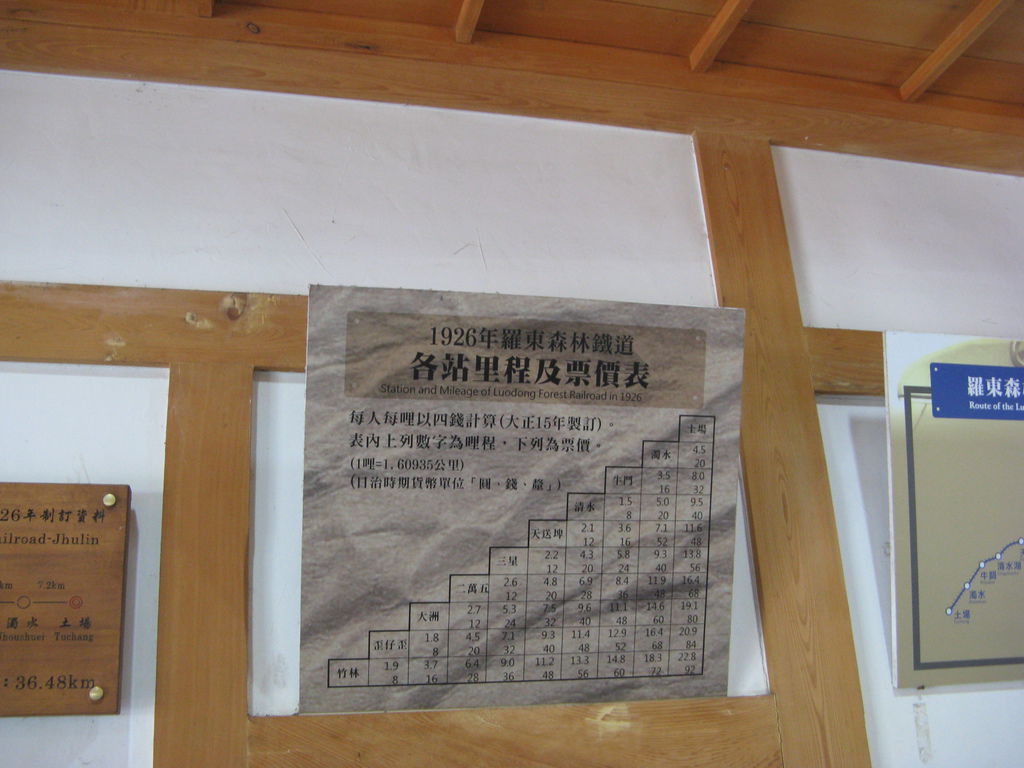 1926年羅東森林鐵道
各站里程及票價表
Station and Mileage of Luodong Forest Railroad in 1926
每人每哩以四錢計算(大正15年製訂)。
表內上列數字為哩程，下列為票價。
(1哩=1.60935公里)
(日治時期貨幣單位「圓、錢、釐」)
土場
濁水 4.5
20
牛鬥 3.5 8.0
16 32
清水 1.5 5.0 9.5
8 20 40
天送埤 2.1 3.6 7.1 11.6
12 16 52 48
三星 2.2 4.3 5.8 9.3 13.8
12 20 24 40 56
二萬五 2.6 4.8 6.9 8.4 11.9 16.4
12 20 28 36 48 68
大洲 2.7 5.3 7.5 9.6 11.1 14.6 19.1
12 24 32 40 48 60 80
歪仔歪 1.8 4.5 7.1 9.3 11.4 12.9 16.4 20.9
8 20 32 40 48 52 68 84
竹林 1.9 3.7 6.4 9.0 11.2 13.3 14.8 18.3 22.8
8 16 28 36 48 56 60 72 92
26年制訂資料
ilroad-Jhulin
km 7.2km
濁水 土場
houshuei Tuchang
:36.48km
羅東森
Route of the Lu
清水湖
牛鬥
濁水
土場